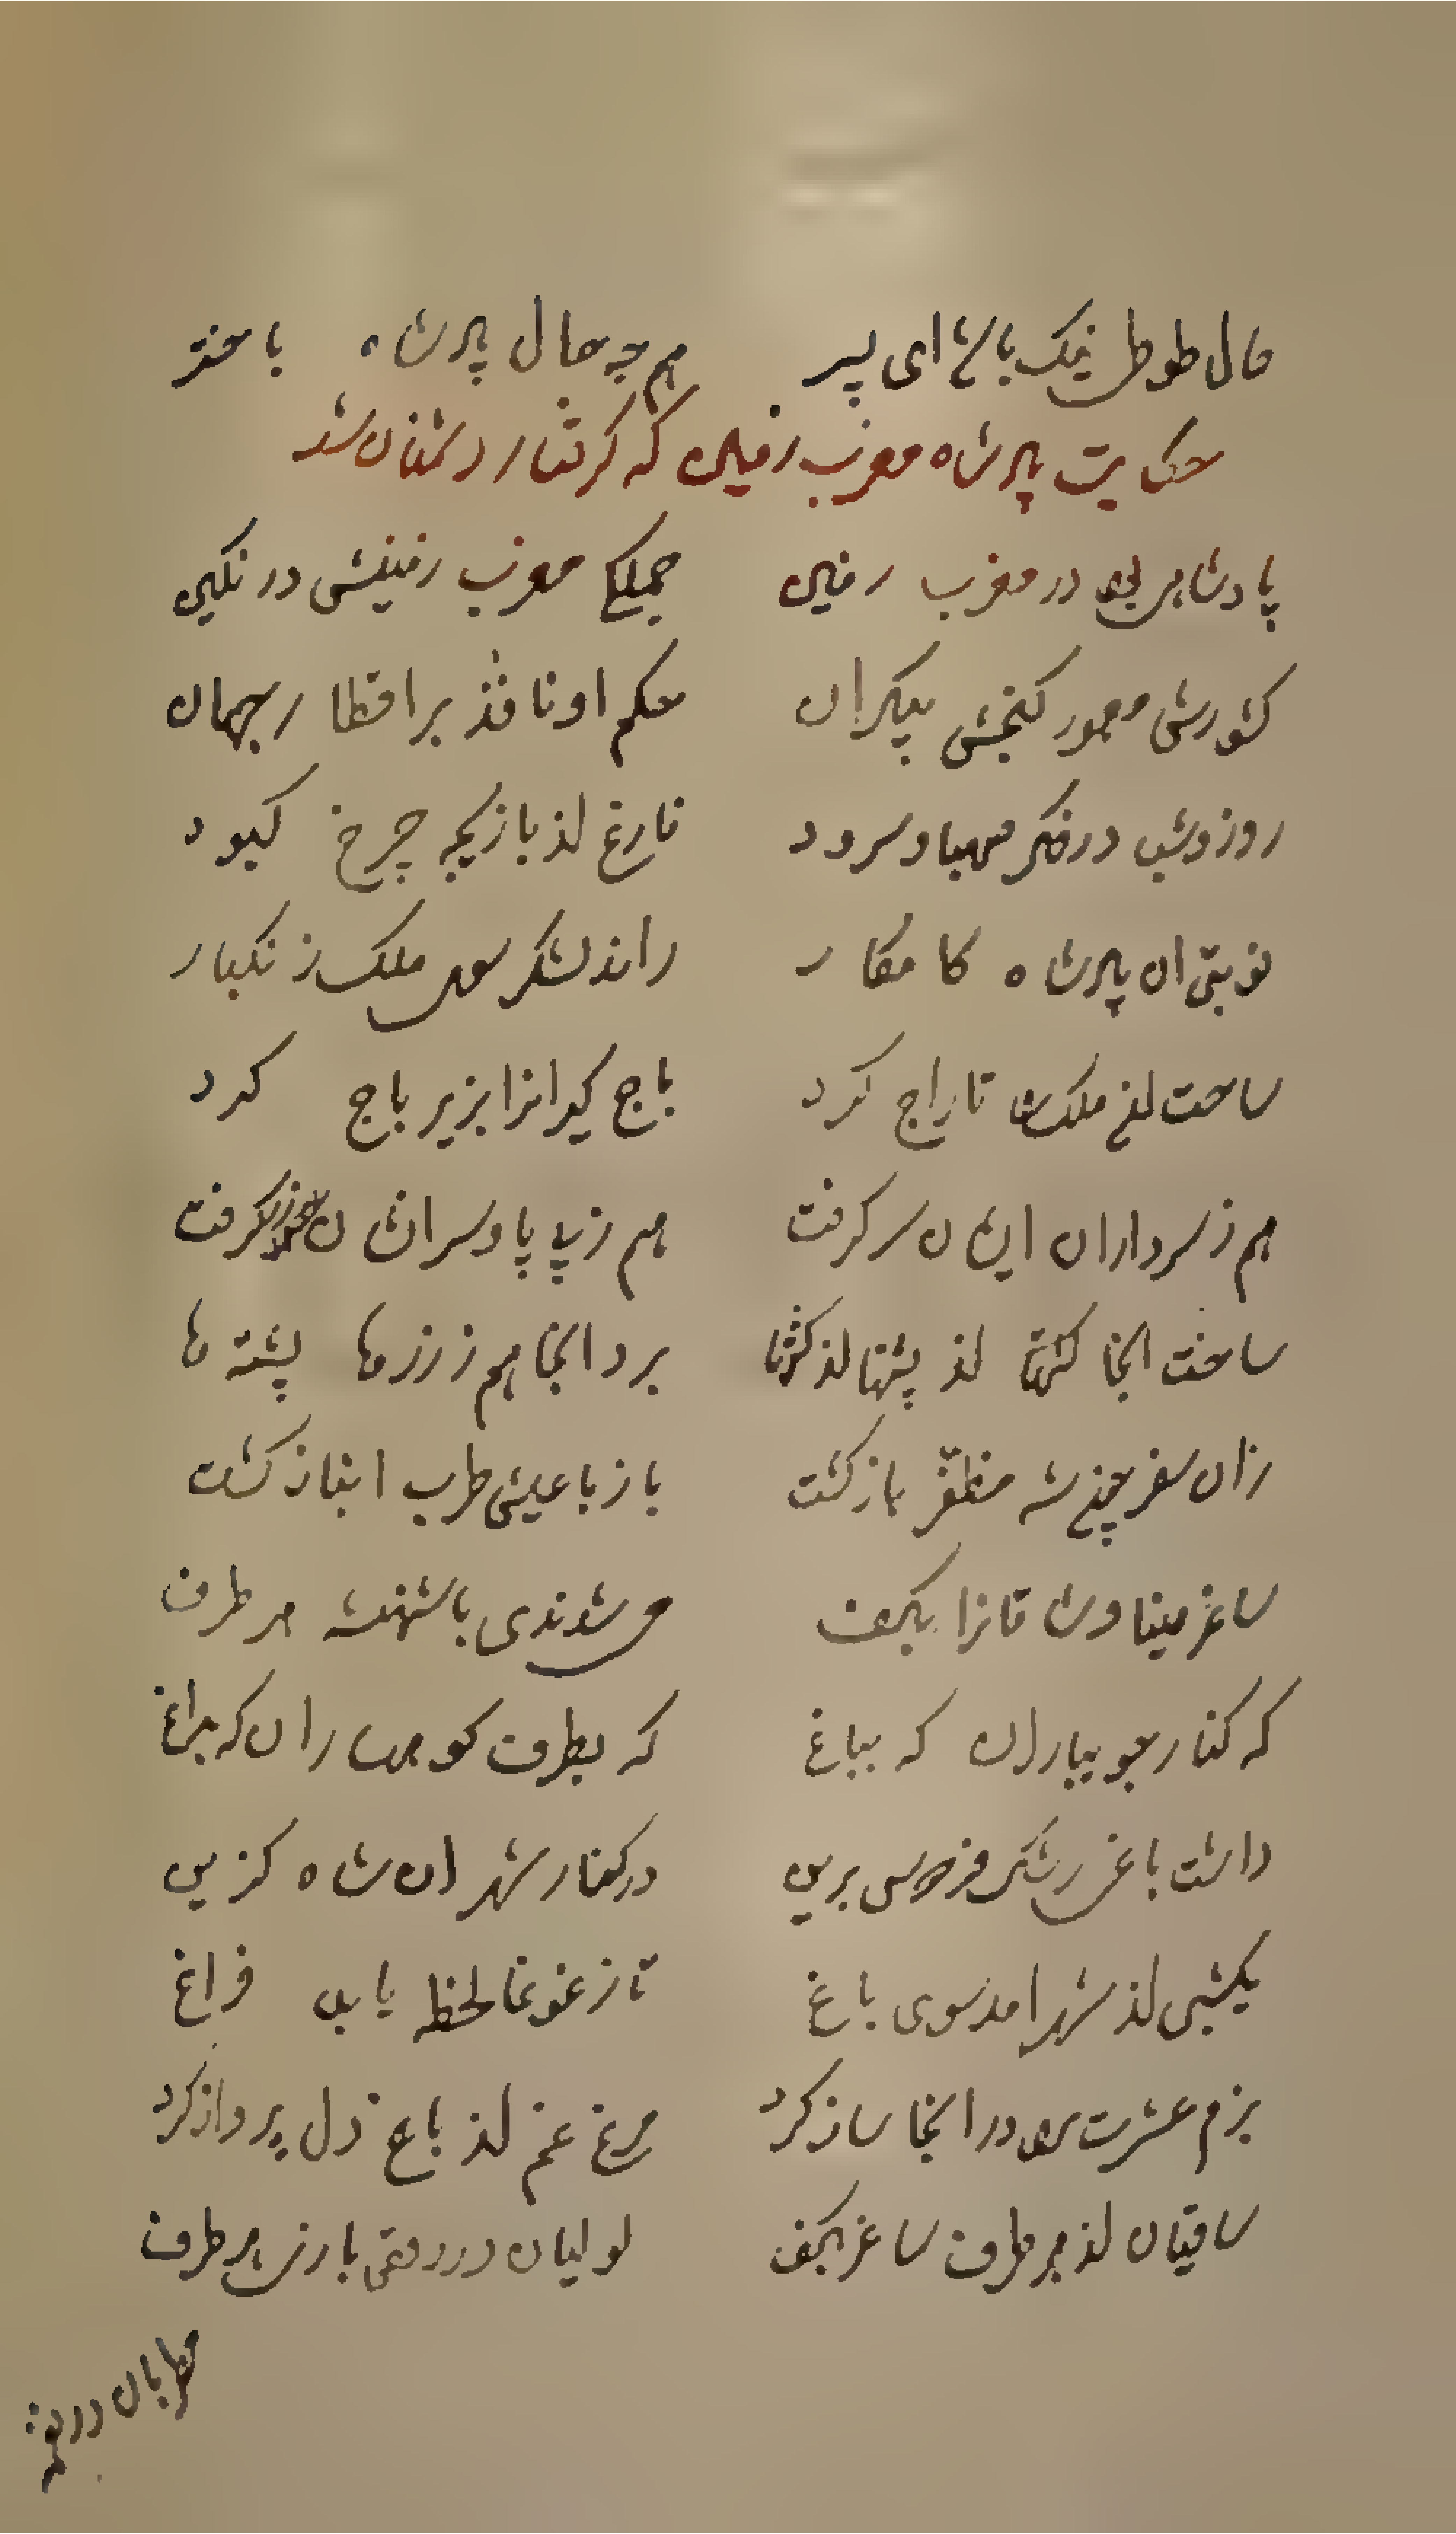 حال طوطی نیک باش ای پسر همچو حال پادشاه باختر
حکایت پادشاه مغرب زمین که گرفتار دشمنان شد
پادشاهی بود در مغرب زمین جمله مغرب زمینش در نگین
کشورش معمور گنجش بیکران حکم او نافذ بر اقطار جهان
روز و شب در فکر صهبا و سرود فارغ از بازیچه چرخ کبود
نوبتی ان پادشاه کامکار راند لشکر سوی ملک زنگبار
ساحت ان ملک تاراج کرد باج گیرانرا بزیر باج کرد
هم ز سرداران ایشان سر گرفت هم ز پی پا و سرانشان گرفت
ساخت انجا کشتها از پشتها از کشتها برد انجا هم ز زرها پشته ها
زان سفر چون شه مظفر بازگشت باز با عیش طرب انباز گشت
ساغر مینا وشاقانرا بکف می شدندی با شهنشه هر طرف
که کنار جویباران که بباغ که بطرف کوهساران که براغ
داشت باغی رشک فردوس برین در کنار شهر ان شاه گزین
یکشبی از شهر امد سوی باغ تا ز غوغا لحظه یابد فراغ
بزم عشرت در انجا ساز کرد مرغ غم از باغ دل پرواز کرد
ساقیان از هر طرف ساغر بکف لولیان در رقص هر طرف
مطربان در نغمه